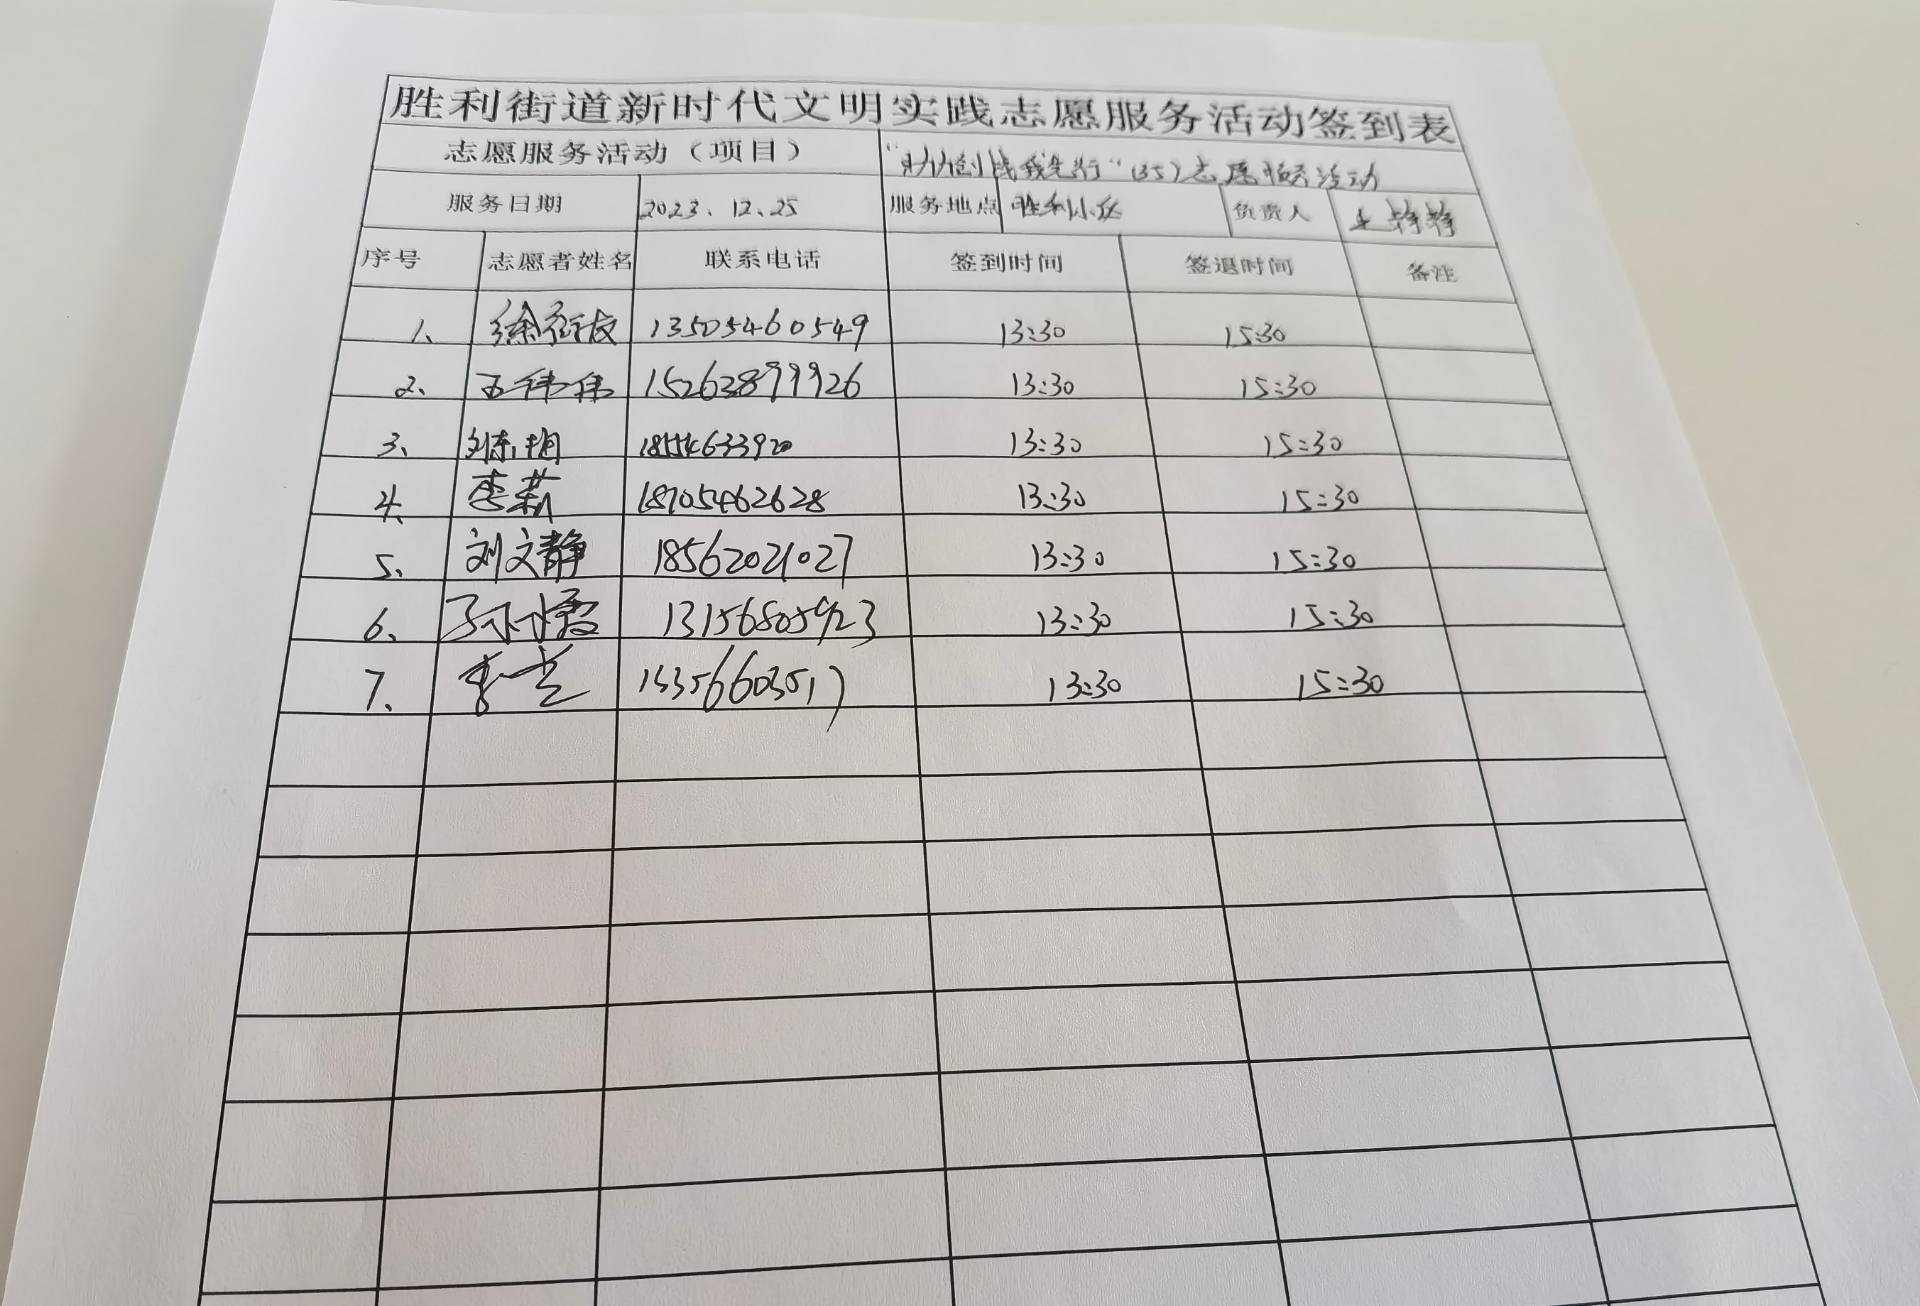 胜利街道新时代文明实践志愿服务活动签到表
志愿服务活动（项目） “助力创城我先行”(35)志愿服务活动
服务日期 2023、12、25 服务地点 胜利小区 负责人
序号 志愿者姓名 联系电话 签到时间 签退时间 备注
1、 13505460549 13:30 15:30
2、 15263899926 13:30 15:30
3、 18554633920 13:30 15:30
4、 李莉 18705462628 13:30 15:30
5、 刘文静 18562021027 13:30 15:30
6、 13156805923 13:30 15:30
7、 13356603517 13:30 15:30